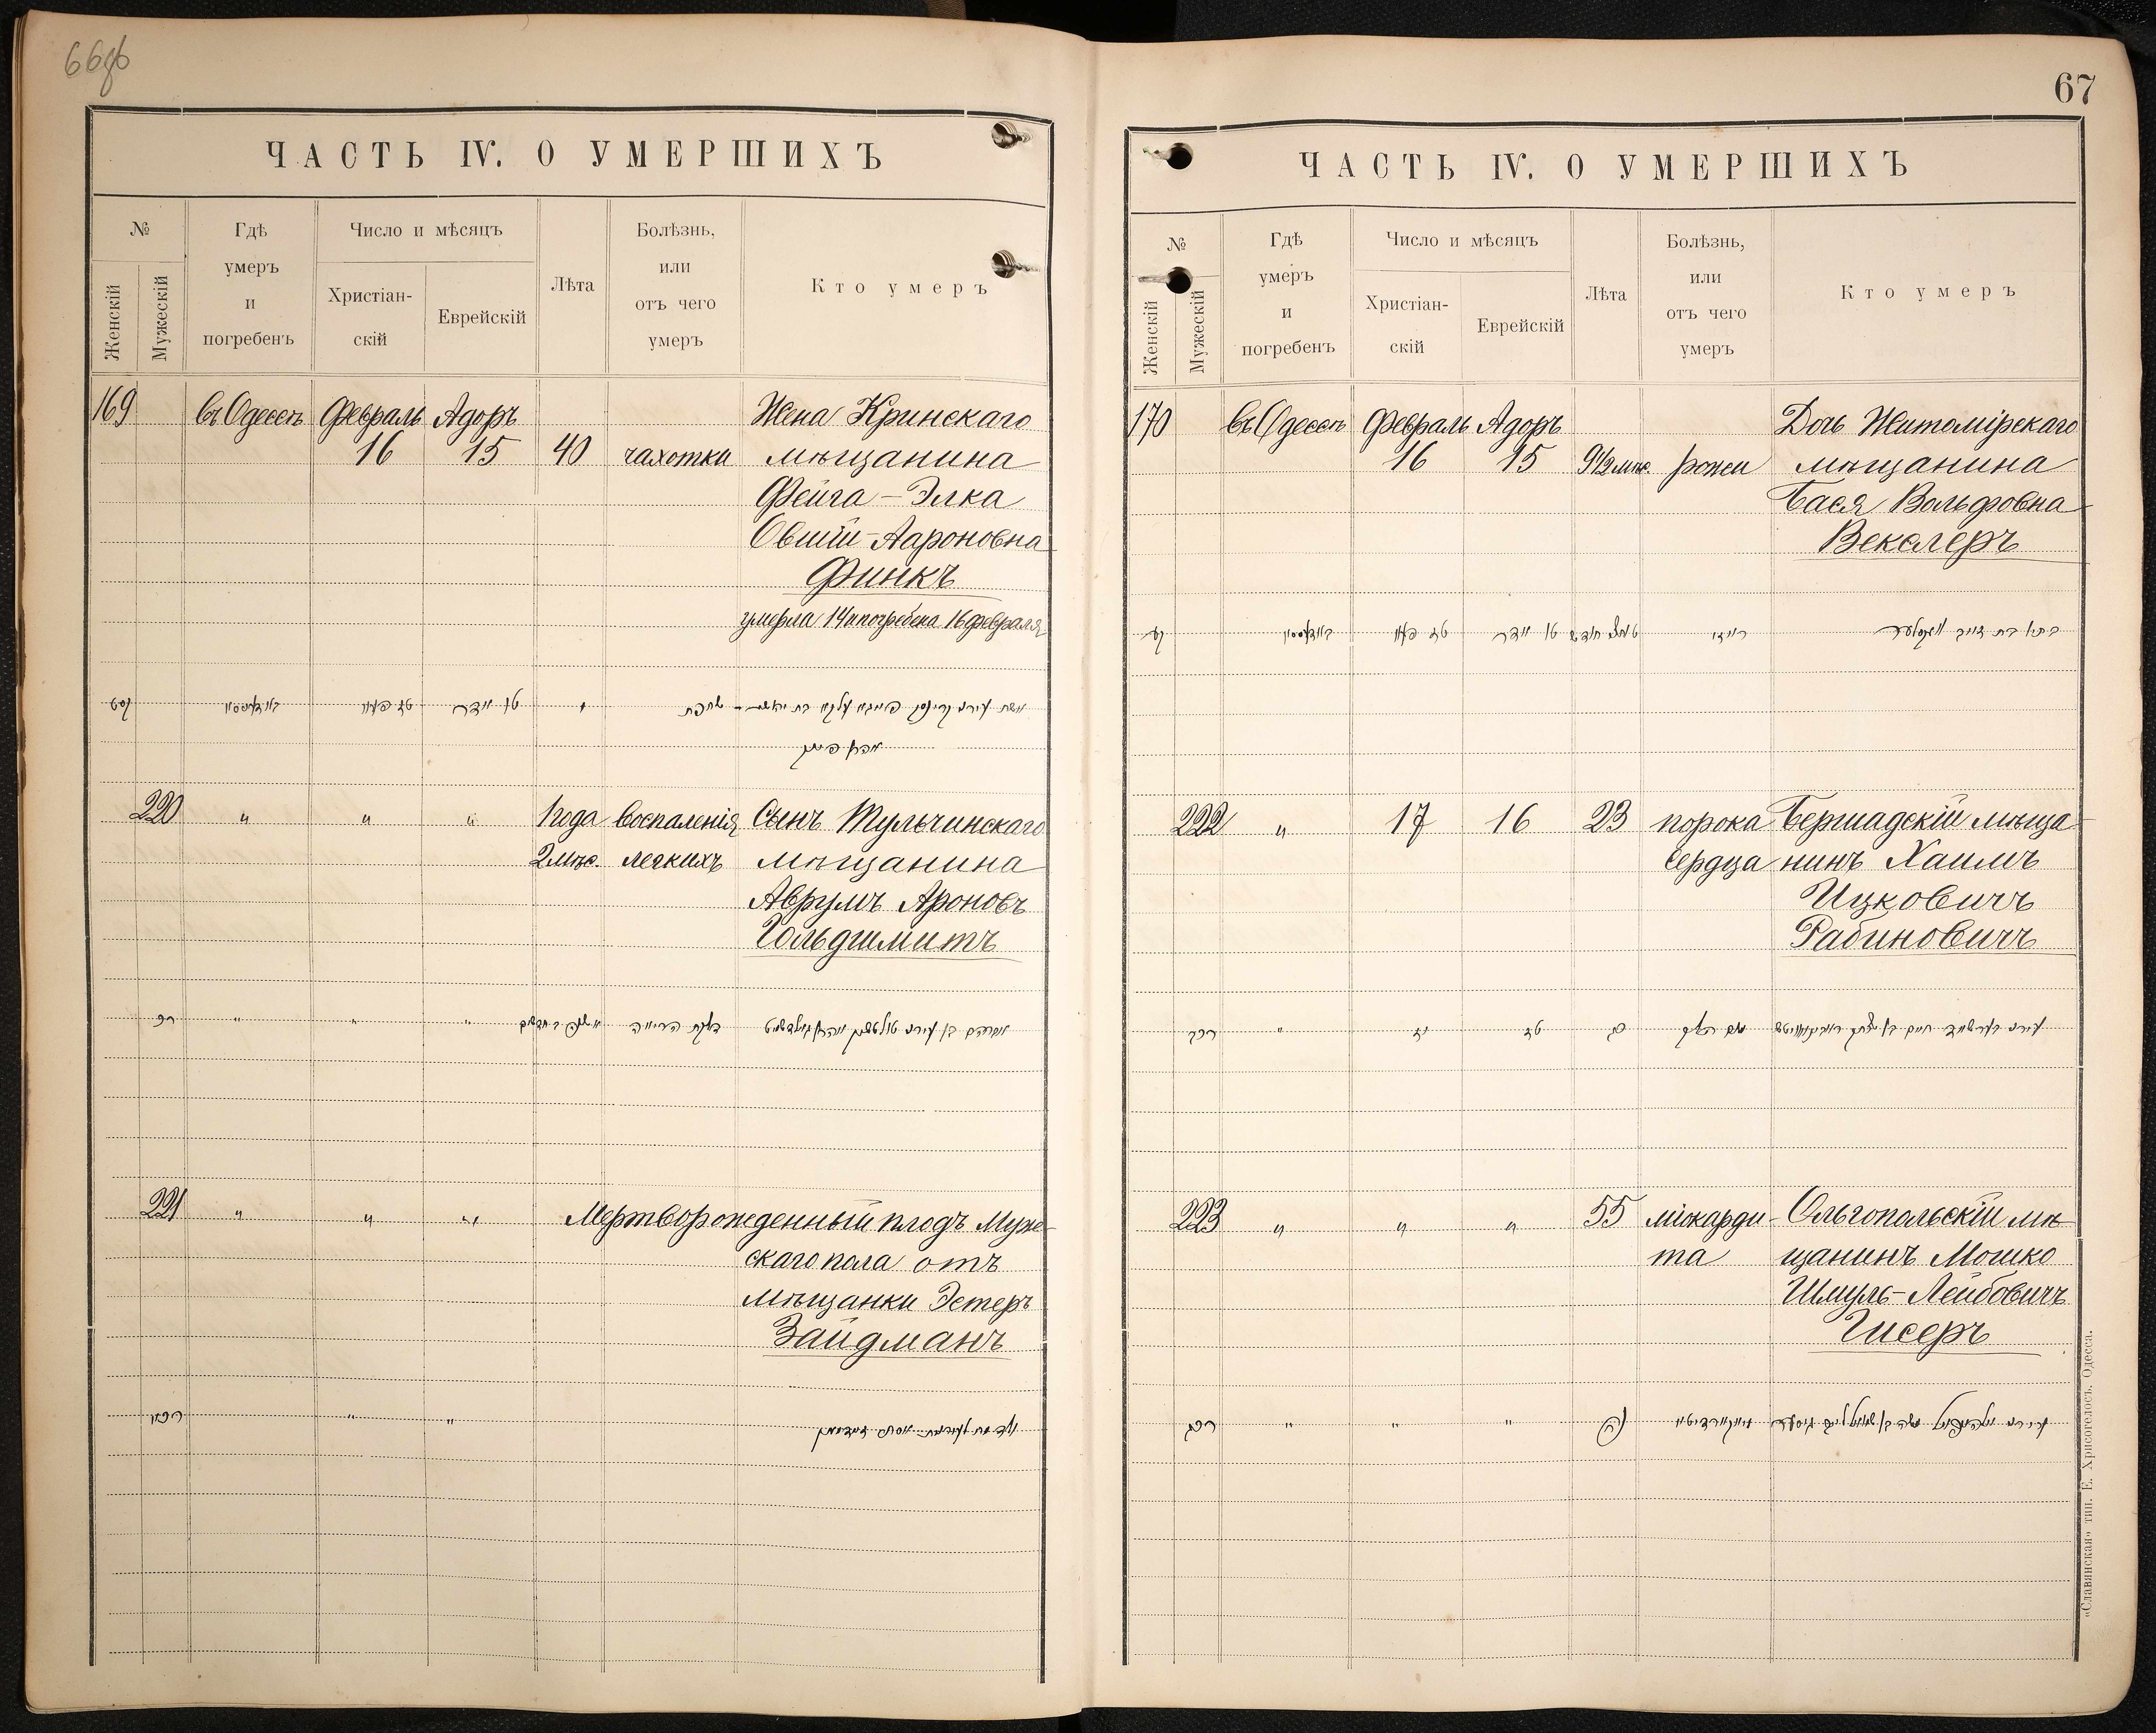 66об
ЧАСТЬ IV. О УМЕРШИХЪ
№
Женскій
Мужескій
Гдѣ
умеръ
и
погребенъ
Число и мѣсяцъ
Христіан-
скій
Еврейскій
Лѣта
Болѣзнь,
или
отъ чего
умеръ
Кто умеръ
169 въ Одессѣ Февраль Адоръ Жена Кринскаго
16 15 40 чахотки мѣщанина
Фейга-Элка
Овшій-Аароновна
Финкъ
умерла 14 и погребена 16 февраля
קסט
220 " " " 1 года воспаленія Сынъ Тульчинскаго
2 мѣс. легкихъ мѣщанина
Аврумъ Ароновъ
Гольдшмитъ
רכ " " "
221 " " " Мертворожденный плодъ Муже-
скаго пола отъ
мѣщанки Эстеръ
Зайдманъ
רכא " "
67
ЧАСТЬ IV. О УМЕРШИХЪ
№
Женскій
Мужескій
Гдѣ
умеръ
и
погребенъ
Число и мѣсяцъ
Христіан-
скій
Еврейскій
Лѣта
Болѣзнь,
или
отъ чего
умеръ
Кто умеръ
170 въ Одессѣ Февраль Адоръ Дочь Житомірскаго
16 15 9 1/2 мѣс. рожи мѣщанина
Бася Вольфовна
Векслеръ
קע
222 " 17 16 23 порока Бершадскій мѣща-
сердца нинъ Хаимъ
Ицковичъ
Рабиновичъ
רכב " יז טז כג
223 " " " 55 міокарди- Ольгопольскій мѣ-
та щанинъ Мошко
Шмуль-Лейбовичъ
Гисеръ
רכג " " " נה
«Славянская» тип. Е. Хрисогелосъ, Одесса.